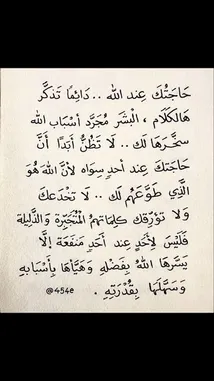 حَاجَتُكَ عِند الله .. دَائِمًا تَذكَّر
هَالكَلَام ، البْشَر مُجَرَّد أسْبَاب الله
سخَّرهَا لكَ .. لَا تَظُنُّ أبَدًا أنَّ
حَاجَتكَ عِند أحدٍ سِوَاه لأنَّ اللهَ هُوَ
الَّذِي طَوَّعَهُم لَك .. لَا تَخْدَعكَ
وَلَا تؤرّقكَ كلِمَاتهمُ المُتَجَبِّرة وَالذَّلِيلة
فَلَيْسَ لِأحَدٍ عِند أحَدٍ مَنفَعَة إلَّا
يَسَّرهَا اللهُ بِفَضْلهِ وَهَيَّأهَا بِأسْبَابِهِ
وَسَهَّلَهَا بِقُدْرَتِهِ .
@454e